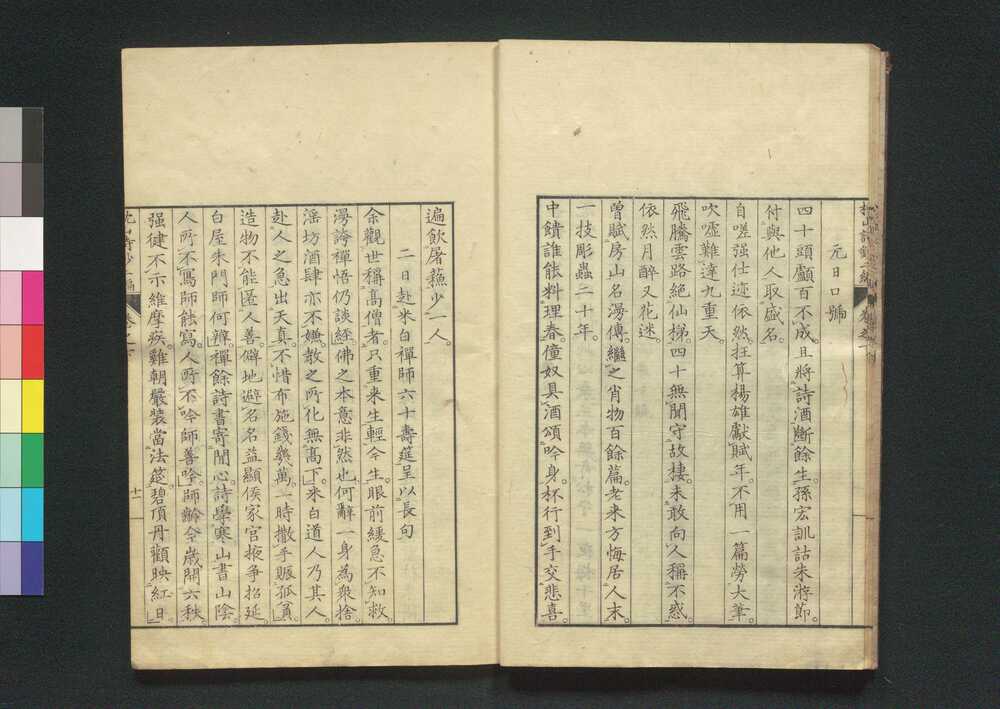 元日口號
四十頭顱百不成。且將詩酒斷餘生。孫宏訓詁朱游節。
付與他人取盛名。
自嗟强仕迹依然。抂算楊雄獻賦年。不用一篇勞大筆。
吹噓難達九重天。
飛騰雲路絕仙梯。四十無聞守故棲。未敢向人稱不惑。
依然月醉又花迷。
曾賦房山名漫傳。繼之肖物百餘篇。老来方悔居人末。
一技彫蟲二十年。
中饋誰能料理春。僮奴具酒頌吟身。杯行到手交悲喜。
遍飲屠蘓少一人。
二日赴米白禪師六十壽筵呈以長句
余觀世稱高僧者。只重来生輕今生。眼前緩急不知救。
漫誇禪悟仍談經。佛之本意非然也。何辭一身為衆捨。
滛坊酒肆亦不嫌。散之所化無高下。米白道人乃其人。
赴人之急出天真。不惜布施錢幾萬。一時撒手賑孤貧。
造物不能匿人善。僻地避名名益顯。侯家官掖争招延。
白屋朱門師何辨。禪餘詩書寄閒心。詩學寒山書山陰。
人所不寫師能寫。人所不吟師善吟。師齡今歲開六秩。
强健不示維摩疾。難朝嚴装當法筵。碧頂丹顴映紅日。
十一